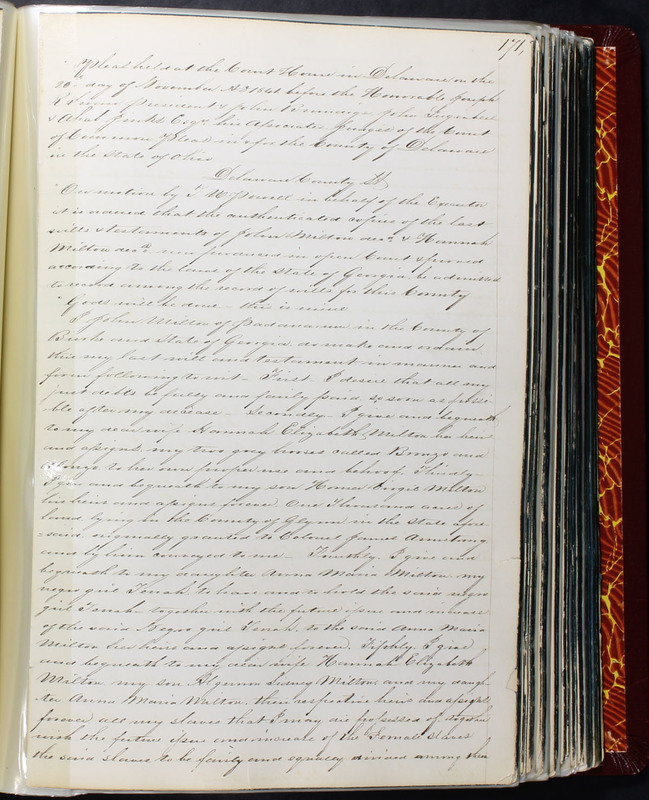 171,
Pleas held at the Court House in Delaware on the
20th day of November AD 1841 before the Honorable Joseph
R Swan President & John
& Ahab Jinks Esqrs his Associates Judges of the Court
of Common Pleas in & for the County of Delaware
in the State of Ohio
Delaware County Ss
On motion by T W Powell in behalf of the Executor
it is ordered that the authenticated copies of the last
wills & testaments of John Milton decd & Hannah
Milton decd now produced in open Court & proved
according to the laws of the State of Georgia be admitted
to record among the record of wills for this County
Gods will be done - this is mine
I John Milton of in the County of
Burke and State of Georgia do make and ordain
this my last will and testament in manner and
form following to wit - First - I desire that all my
just debts be fully and fairly paid so soon as possi-
ble after my decease - Secondly - I give and bequeath
to my dear wife Hannah Elizabeth Milton her heirs
and assigns my two gray horses called Bonzo and
to her own proper use and behoof. Thirdly -
I give and bequeath to my son Homer Virgil Milton
his heirs and assigns forever One Thousand acres of
land lying in the County of Glynn in the State afore-
said originally granted to Colonel James Armstrong
and by him conveyed to me - Fourthly I give and
bequeath to my daughter Anna Maria Milton my
negro girl Tenah to have and to hold the said negro
girl Tenah together with the future issue and increase
of the said Negro girl Tenah, to the said Anna Maria
Milton her heirs and assigns forever. Fifthly, I give
and bequeath to my dear wife Hannah Elizabeth
Milton my son Algernon Sidney Milton and my daugh-
ter Anna Maria Milton, their respective heirs and assigns
forever all my slaves that I may die possessed of together
with the future issue and increase of the Female slaves
the said slaves to be fairly and equally divided among them